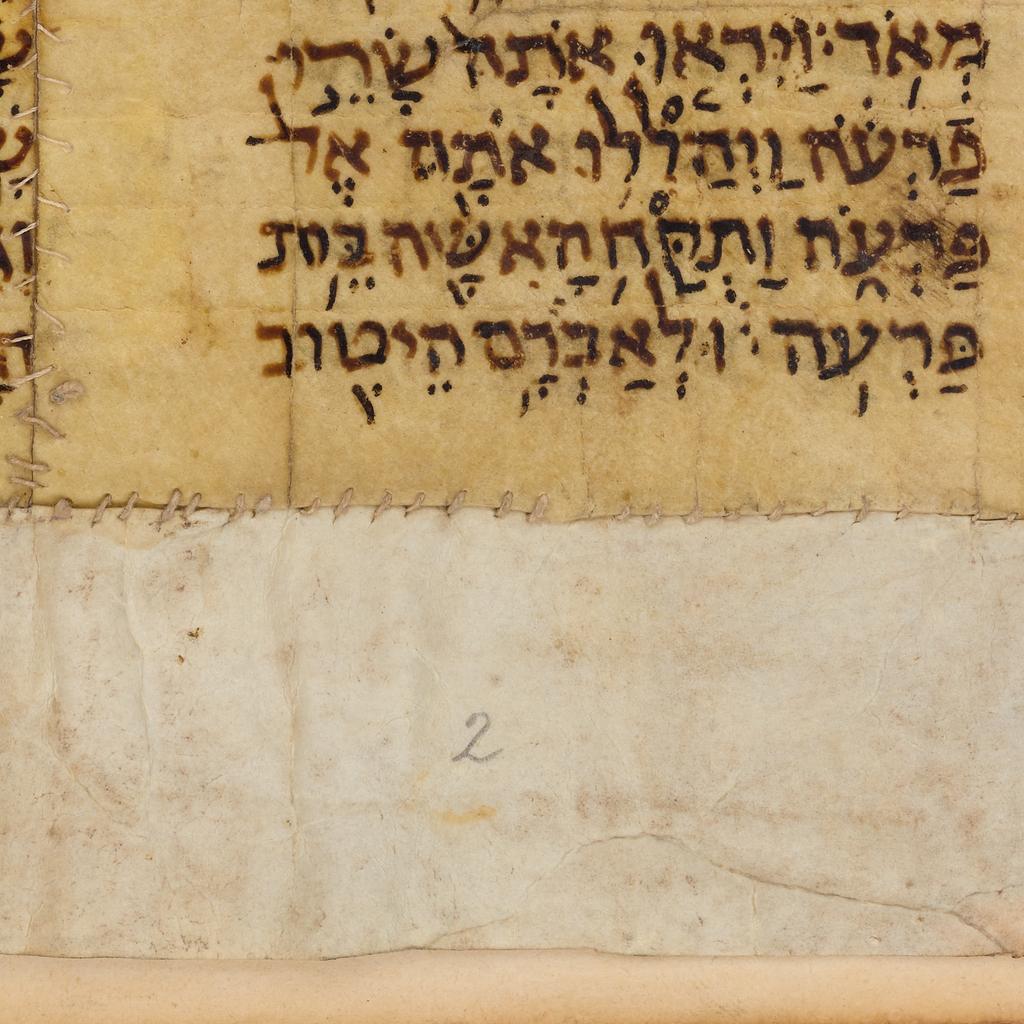 מְאֹד׃ וַיִּרְאוּ אֹתָהּ שָׂרֵי
פַרְעֹה וַיְהַלְלוּ אֹתָהּ אֶל
פַּרְעֹה וַתֻּקַּח הָאִשָּׁה בֵּית
פַּרְעֹה׃ וּלְאַבְרָם הֵיטִיב
2